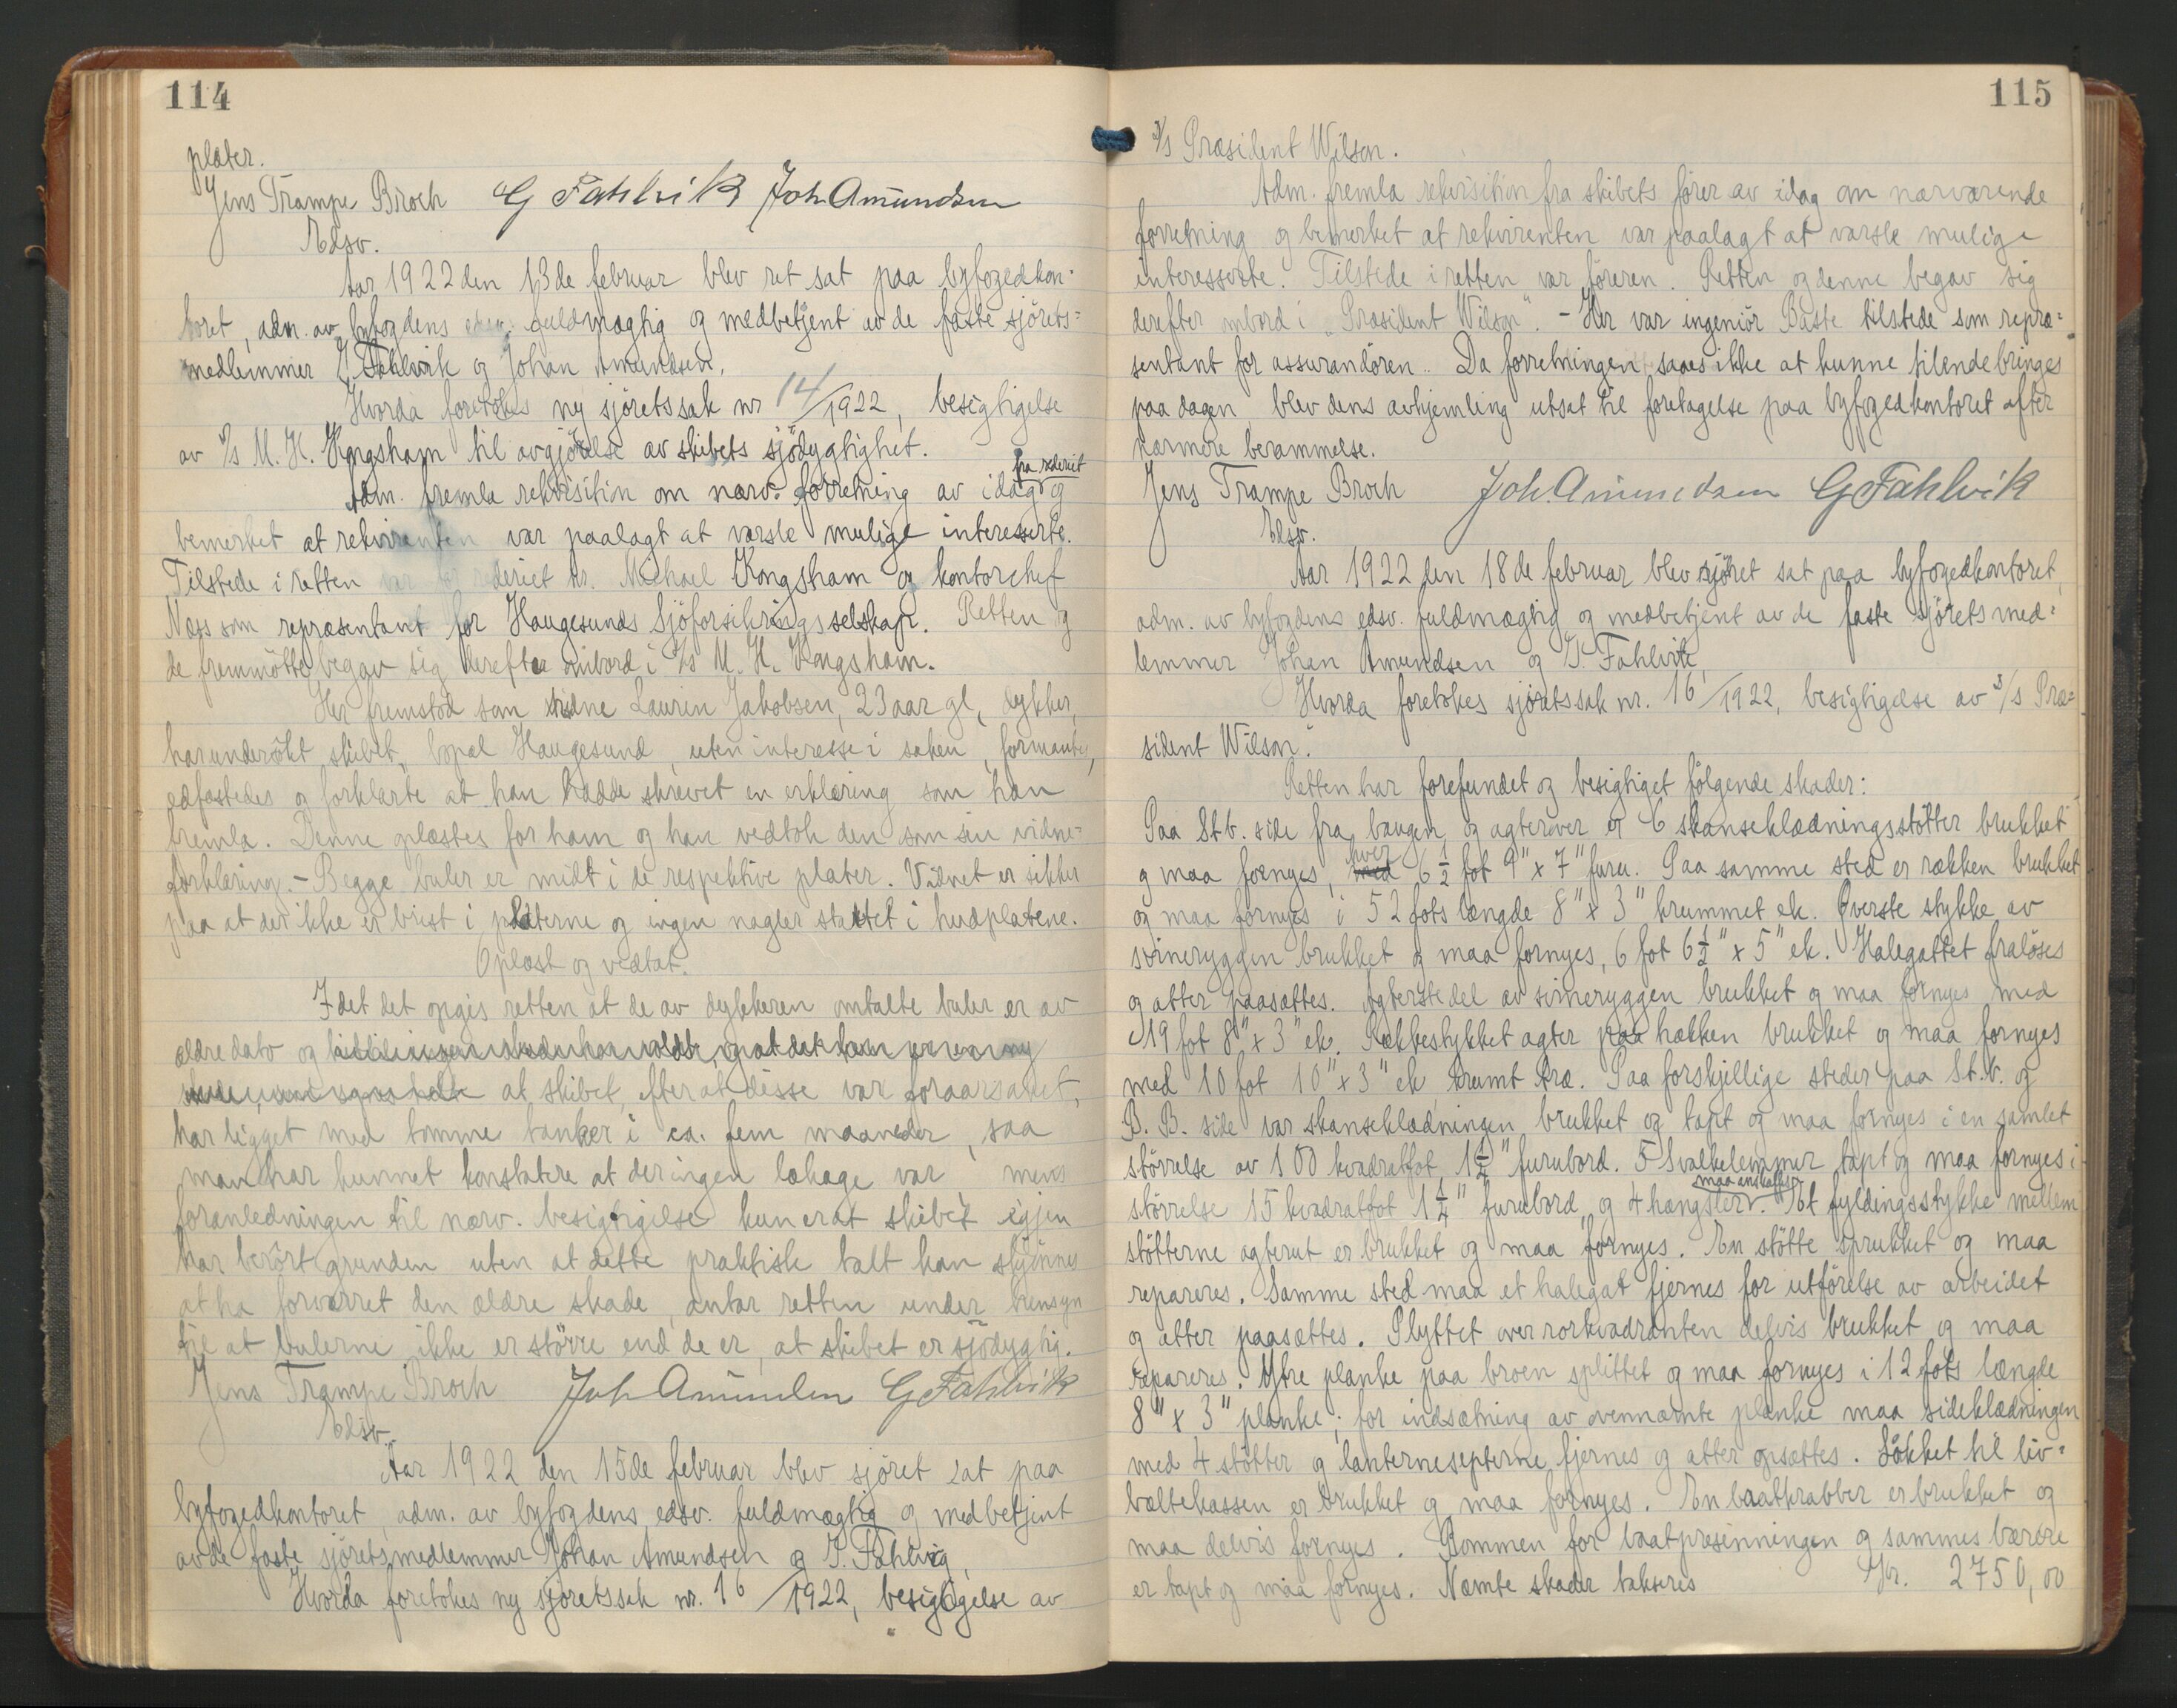 114
plater.
Jens Trampe Broch G Fahlvik Joh Amundsen
Edsv.
Aar 1922 den 13de februar blev ret sat paa byfogedkon-
toret, adm. av byfogdens edsv. fuldmægtig og medbetjent av de faste sjörets-
medlemmer G. Fahlvik og Johan Amundsen.
Hvorda foretokes ny sjöretssak nr 14/1922, besigtigelse
av S/s M. H. Kongsham til avgjörelse av skibets sjödygtighet.
fra rederiet
Adm. fremla rekvisition om nærv. forretning av idag og
bemerket at rekvirenten var paalagt at varsle mulige interesserte.
Tilstede i retten var for rederiet hr. Michael Kongsham og kontorchef
Næss som repræsentant for Haugesunds Sjöforsikringsselskap. Retten og
de fremmötte begav sig derefter ombord i S/s M. H. Kongsham.
Her fremstod som vidne Laurin Jakobsen, 23 aar gl, dykker,
har undersökt skibet, bopæl Haugesund, uten interesse i saken, formantes,
edfæstedes og forklarte at han hadde skrevet en erklæring som han
fremla. Denne oplæstes for ham og han vedtok den som sin vidne-
forklaring. - Begge buler er midt i de respektive plater. Vidnet er sikker
paa at der ikke er brist i platerne og ingen nagler slaktet i hudplatene.
Oplæst og vedtat.
Idet det opgis retten at de av dykkeren omtalte buler er av
ældre dato og
at skibet, efterat disse var foraarsaket,
har ligget med tomme tanker i ca. fem maaneder, saa
man har kunnet konstatere at der ingen lækage var, mens
foranledningen til nærv. besigtigelse kun er at skibet igjen
har berört grunden uten at dette praktisk talt kan skjönnes
at ha forværret den ældre skade, antar retten under hensyn
til at bulerne ikke er större end de er, at skibet er sjödygtig.
Jens Trampe Broch Joh Amundsen G Fahlvik
Edsv.
Aar 1922 den 15de februar blev sjöret sat paa
byfogedkontoret, adm. av byfogdens edsv. fuldmægtig og medbetjent
av de faste sjöretsmedlemmer Johan Amundsen og G. Fahlvig,
Hvorda foretokes ny sjöretssak nr. 16/1922, besigtigelse av
115
S/s Præsident Wilson.
Adm. fremla rekvisition fra skibets förer av idag om nærværende
forretning og bemerket at rekvirenten var paalagt at varsle mulige
interesserte. Tilstede i retten var föreren. Retten og denne begav sig
derefter ombord i "Præsident Wilson". - Her var ingeniör Baste tilstede som repræ-
sentant for assurandören. Da forretningen saaes ikke at kunne tilendebringes
paa dagen blev dens avhjemling utsat til foretagelse paa byfogedkontoret efter
nærmere berammelse.
Jens Trampe Broch Joh. Amundsen G Fahlvik
Edsv.
Aar 1922 den 18de februar blev sjöret sat paa byfogedkontoret,
adm. av byfogdens edsv. fuldmægtig og medbetjent av de faste sjöretsmed-
lemmer Johan Amundsen og G. Fahlvik
Hvorda foretokes sjöretssak nr. 16/1922, besigtigelse av S/s Præ-
sident Wilson.
Retten har forefundet og besigtiget fölgende skader:
Paa St.b. side fra baugen og agterover er 6 skanseklædningsstötter brukket
og maa fornyes, med hver 6 1/2 fot 9" x 7" furu. Paa samme sted er rækken brukket
og maa fornyes i 52 fots længde 8" x 3" krummet ek. Överste stykke av
svineryggen brukket og maa fornyes, 6 fot 6 1/2" x 5" ek. Halegattet fralöses
og atter paasættes. Agterste del av svineryggen brukket og maa fornyes med
19 fot 8" x 3" ek. Rækkestykket agter paa hækken brukket og maa fornyes
med 10 fot 10" x 3" ek krumt træ. Paa forskjellige steder paa St.b. og
B. B. side var skanseklædningen brukket og tapt og maa fornyes i en samlet
störrelse av 100 kvadratfot 1 1/4" furubord. 5 Svalkelemmer tapt og maa fornyes i
maa anskaffes
störrelse 15 kvadratfot 1 1/4" furubord, og 4 hængsler. Et fyldingsstykke mellem
stötterne agterut er brukket og maa fornyes. En stötte sprukket og maa
repareres. Samme sted maa et halegat fjernes for utförelse av arbeidet
og atter paasættes. Plyttet over rorkvadranten delvis brukket og maa
repareres. Ytre planke paa broen splittet og maa fornyes i 12 fots længde
8" x 3" planke; for indsætning av ovennævnte planke maa sideklædningen
med 4 stötter og lanternesepterne fjernes og atter opsættes. Lokket til liv-
bæltekassen er brukket og maa fornyes. En baatkrabber er brukket og
maa delvis fornyes. Bommen for baatpresenningen og sammes bærere
er tapt og maa fornyes. Nævnte skader takseres Kr. 2750,00